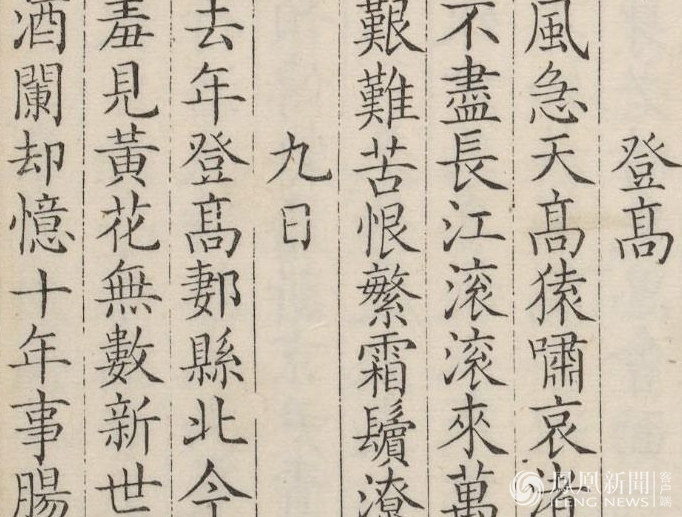 登高
風急天高猿嘯哀渚
不盡長江滚滚來萬
艱難苦恨繁霜鬢潦
九日
去年登高郪縣北今
羞見黃花無數新世
酒闌却憶十年事腸
鳳凰新聞 客户端
IFENG NEWS